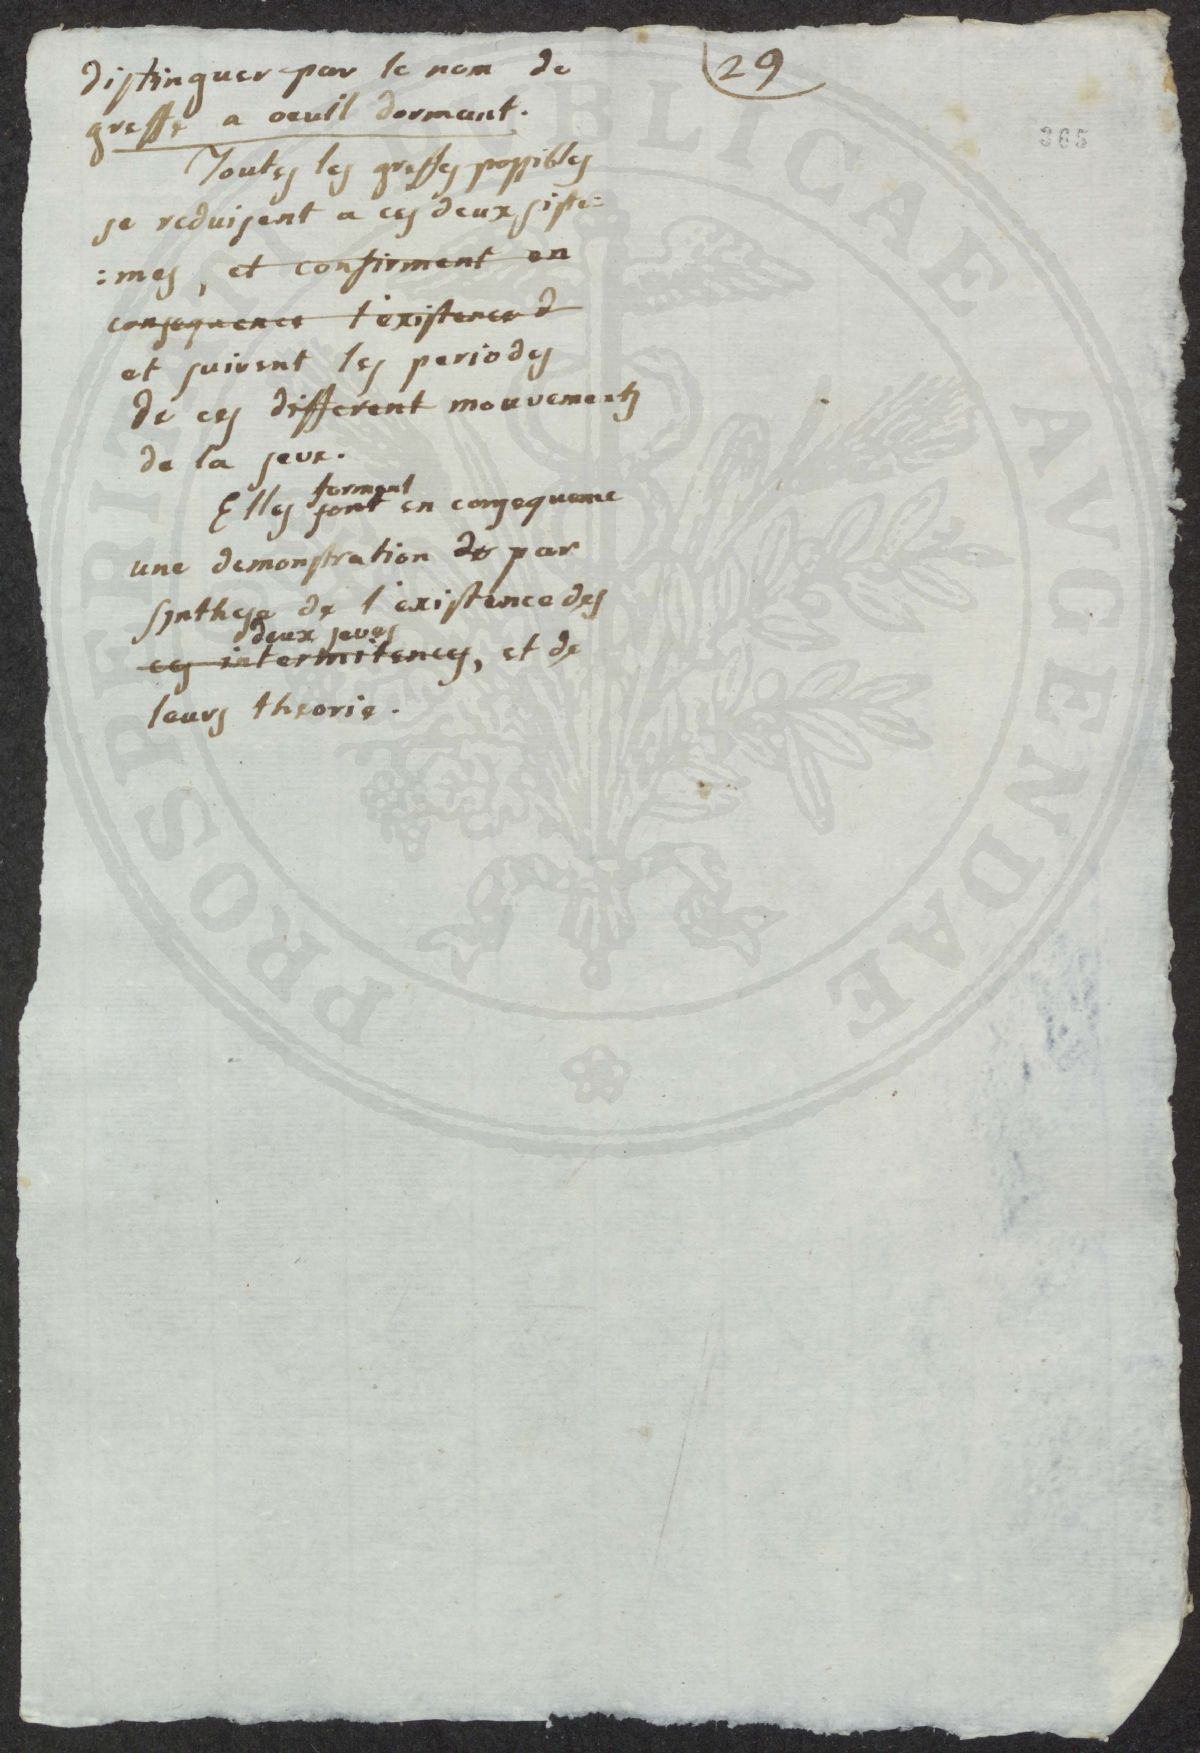 29
365
distinguer par le nom de
greffe a oeuil dormant.
Toutes les greffes possibles
se reduisent a ces deux siste=
:mes, et confirment en
consequence l'existence d
et suivent les periodes
de ces different mouvements
de la seve.
forment
Elles sont en consequence
une demonstration de par
synthese de l'existence des
deux seves
ces intermitences, et de
leurs theorie.
PROSPERITATI PUBLICAE AVGENDAE